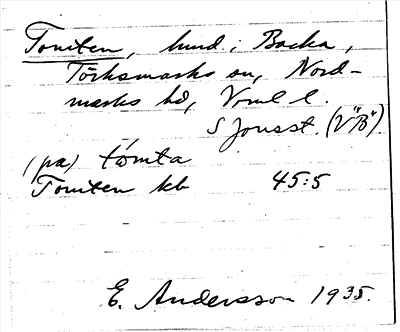 Tomten, hmd i Backa,
Törksmarks sn, Nord-
marks hd, Vrml l.
S Jonsst. (V"B")
(på) tòmta
Tomten kb 45:5
E. Andersson 1935.